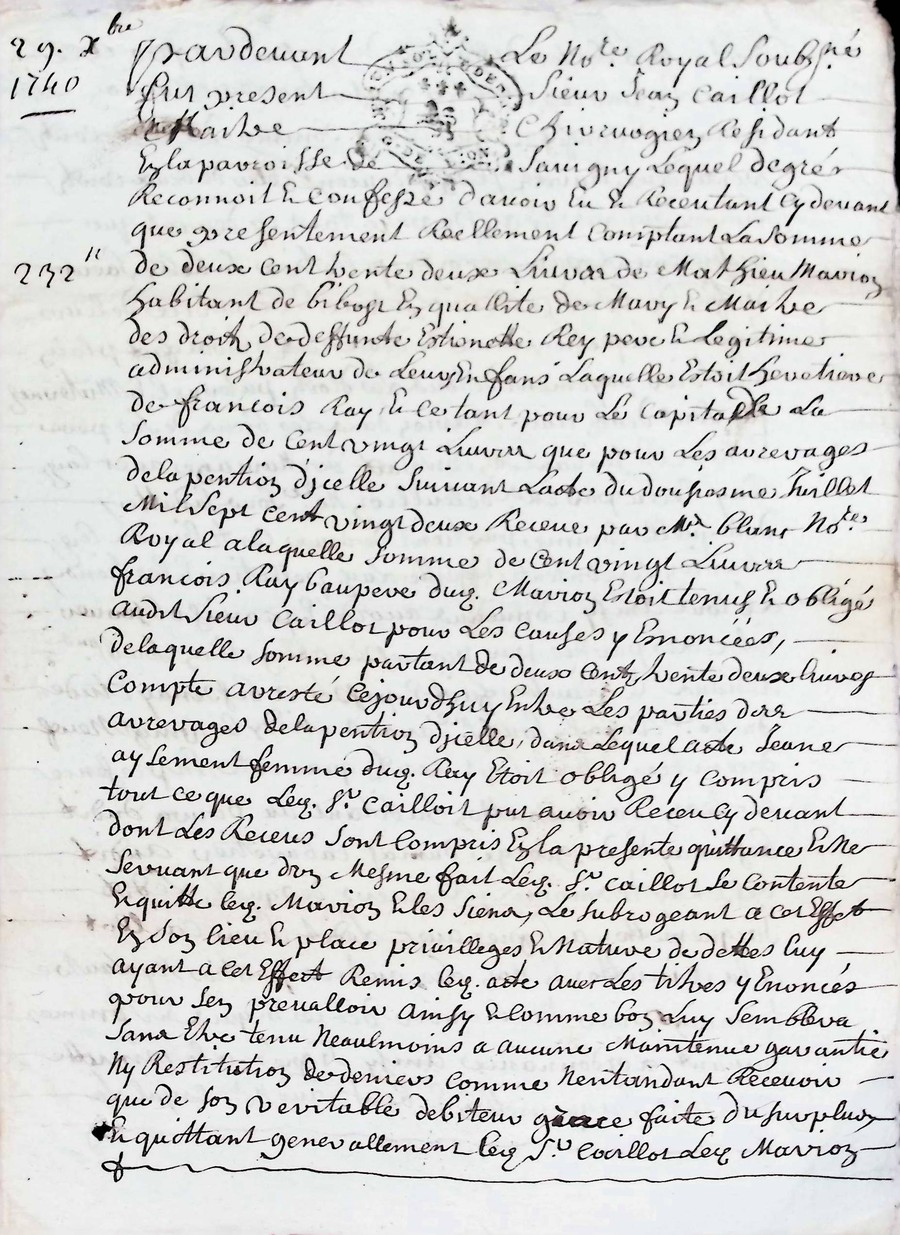 29. Xbre
1740
Pardevant Le Nore Royal Soubsné
fut present Sieur Jean Caillot
Maitre Chirurogien Residant
En la parroisse de Savigny Lequel de gré
Reconnoit Et Confesse d'avoir Eu Et Receu tant Cy devant
que presentement Reellement Comptant La Somme
232ll de deux Cent trente deux Livres de Mathieu Marion
habitant de bibost En quallite de Mary Et Maitre
des droits de deffunte Estiennette Rey pere Et Legitime
administrateur de Leurs Enfans Laquelle Estoit heretiere
de francois Ray, Et Ce tant pour Le Capital de La
Somme de Cent vingt Livres que pour Les arrerages
de la pention d'jcelle Suivant Lacte du dousiesme Juillet
Mil Sept Cent vingt deux Receue par Mr. blanc Nore
Royal a laquelle Somme de Cent vingt Livres
francois Ray beaupere dud. Marion Estoit tenus Et obligé
audit Sieur Caillot pour Les Causes y Enoncéés,
de laquelle Somme partant de deux Cent trente deux Livres
Compte arresté Cejourdhuy Entre Les parties des
arrerages de la pention d'jcelle, dans Lequel acte Jeane
aysement femme dud. Ray Etoit obligé y Compris
tout Ce que Led. Sr. Cailloit put avoir Receu Cy devant
dont Les Receus Sont Compris En la presente quittance Et Ne
Servant que d'un Mesme fait Led. Sr. Caillot Se Contente
Et quitte led. Marion Et les Siens, Le Subrogeant a Cet Effet
En Son lieu Et place privilleges Et Nature de dettes luy
ayant a Cet Effect Remis led. acte avec Les titres y Enoncés
pour Sen prevalloir ainsy Et Comme bon Luy Semblera
Sans Etre tenu Neaulmoins a aucune Maintenue garantie
Ny Restitution de deniers Comme Nentandant Recevoir
que de Son veritable debiteur grace faite du Surplus
Et quittant generallement led Sr. Caillot Led. Marion